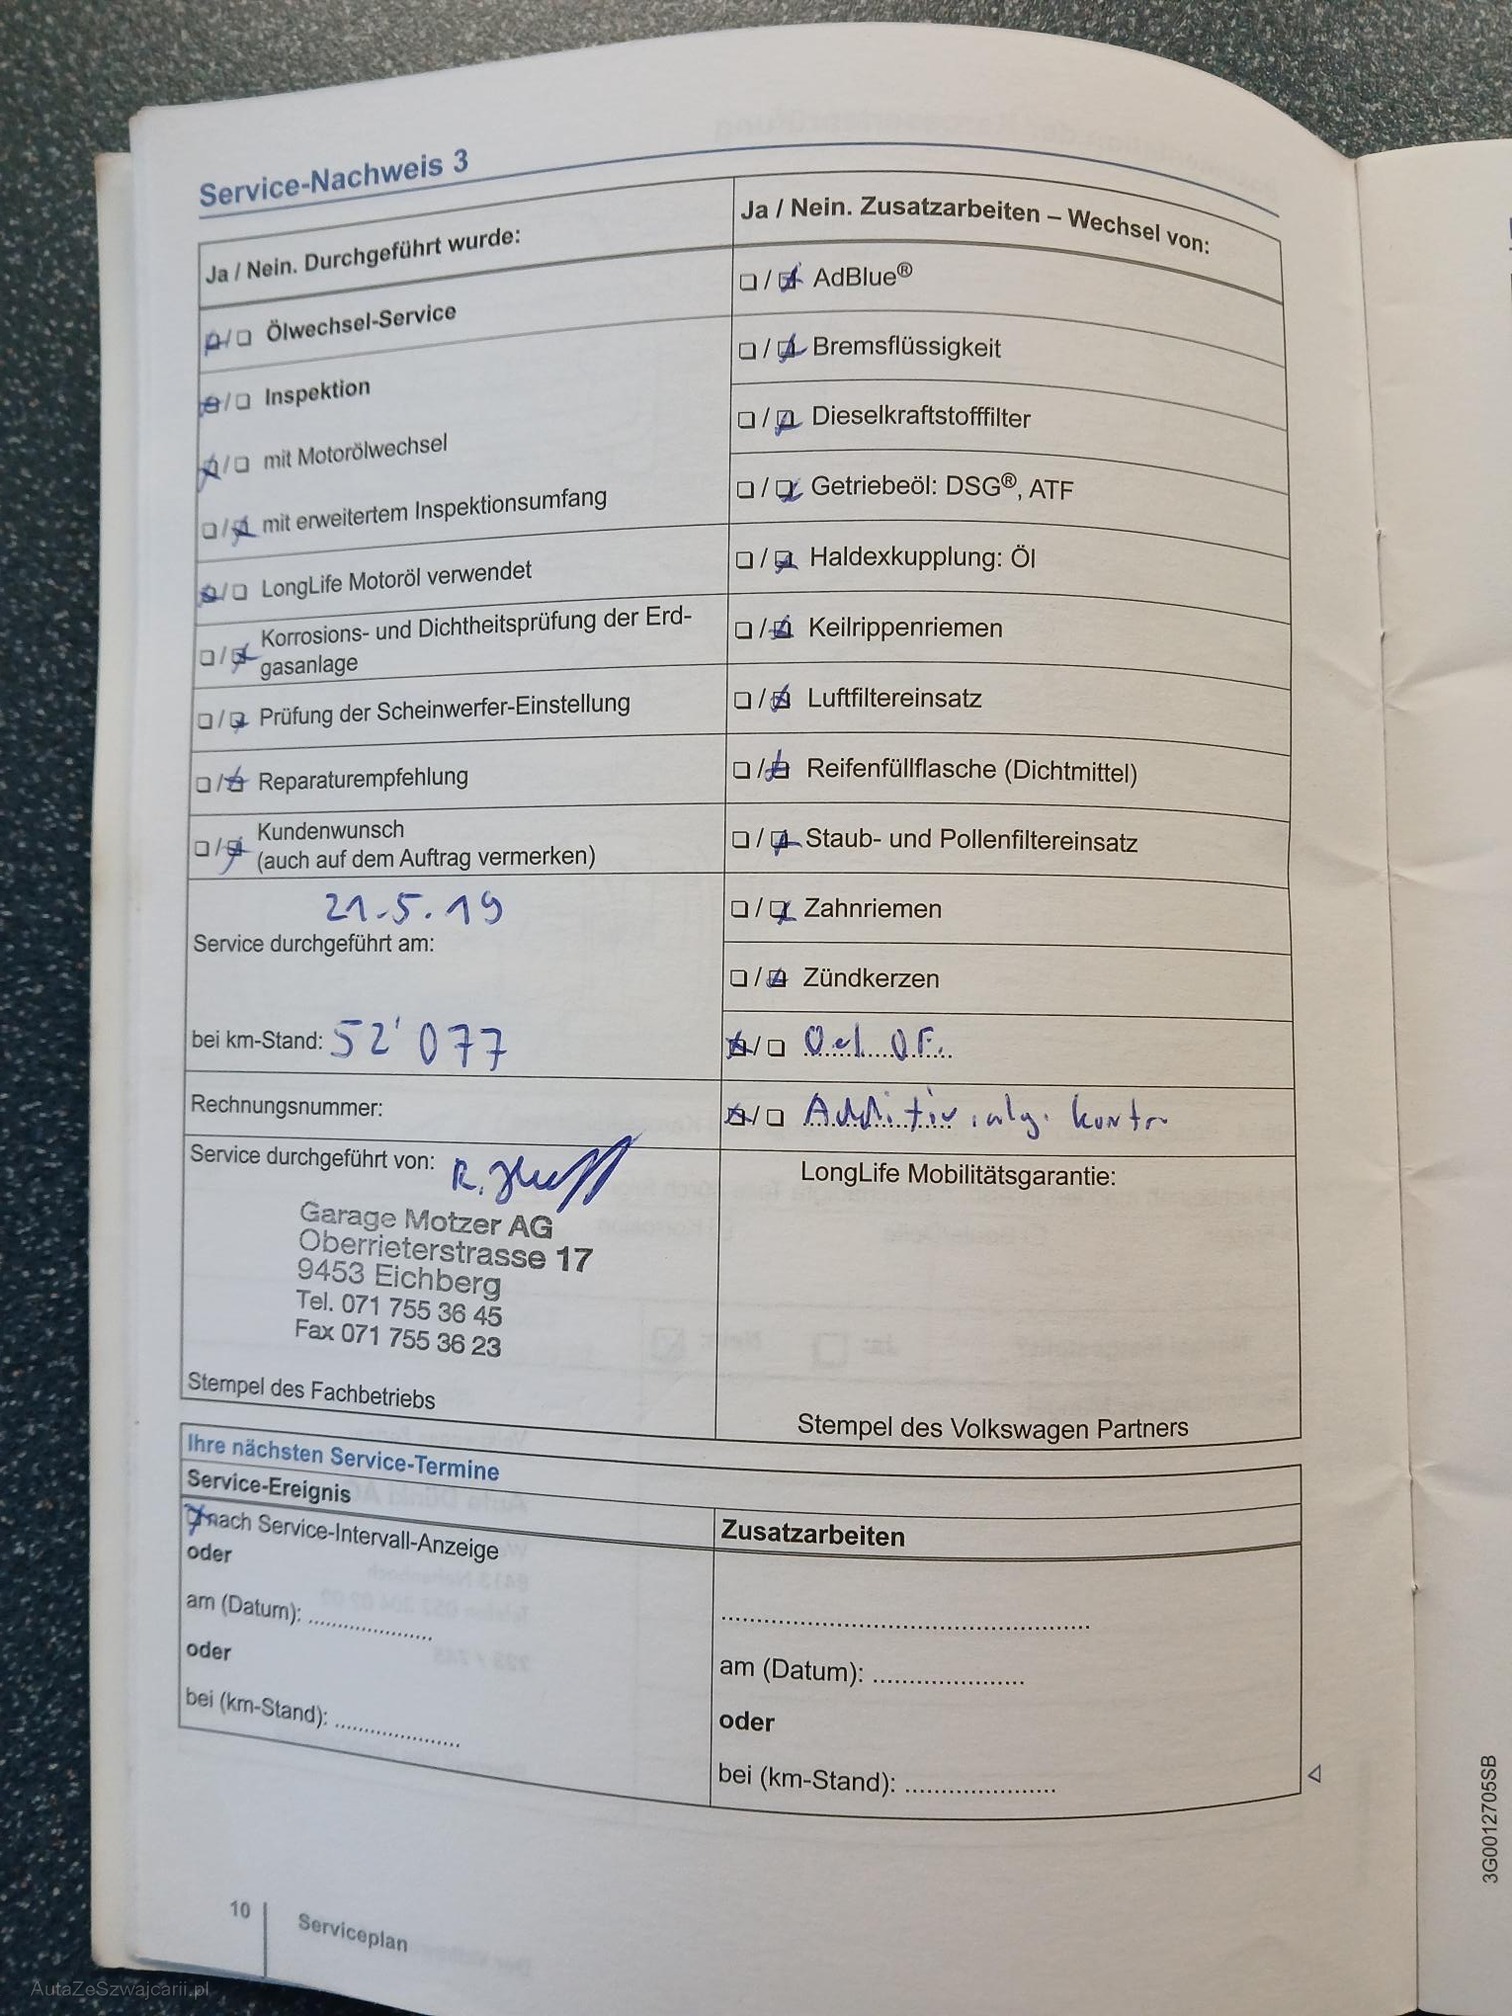 Service-Nachweis 3
Ja / Nein. Durchgeführt wurde:
Ölwechsel-Service
Inspektion
mit Motorölwechsel
mit erweitertem Inspektionsumfang
LongLife Motoröl verwendet
Korrosions- und Dichtheitsprüfung der Erd-
gasanlage
Prüfung der Scheinwerfer-Einstellung
Reparaturempfehlung
Kundenwunsch
(auch auf dem Auftrag vermerken)
21.5.19
Service durchgeführt am:
bei km-Stand: 52'077
Rechnungsnummer:
Service durchgeführt von: R.
Garage Motzer AG
Oberrieterstrasse 17
9453 Eichberg
Tel. 071 755 36 45
Fax 071 755 36 23
Stempel des Fachbetriebs
Ja / Nein. Zusatzarbeiten – Wechsel von:
AdBlue®
Bremsflüssigkeit
Dieselkraftstofffilter
Getriebeöl: DSG®, ATF
Haldexkupplung: Öl
Keilrippenriemen
Luftfiltereinsatz
Reifenfüllflasche (Dichtmittel)
Staub- und Pollenfiltereinsatz
Zahnriemen
Zündkerzen
Oel OF.
Additiv, alg. kontr
LongLife Mobilitätsgarantie:
Stempel des Volkswagen Partners
Ihre nächsten Service-Termine
Service-Ereignis
nach Service-Intervall-Anzeige
oder
am (Datum): ....................
oder
bei (km-Stand): ....................
Zusatzarbeiten
am (Datum): ....................
oder
bei (km-Stand): ....................
10
Serviceplan
3G0012705SB
AutaZeSzwajcarii.pl